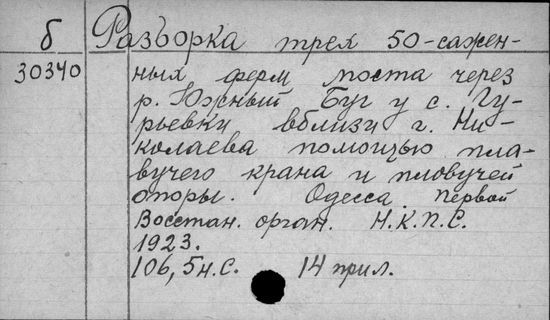 б Разборка трех 50-сажен-
30340 ных ферм моста через
р. Южный Буг у с. Гу-
рьевку вблизи г. Ни-
колаева помощью пла-
вучего крана и пловучей
опоры. Одесса. Первой
Восстан. орган. Н.К.П.С.
1923.
106, 5н.с. 14 прил.